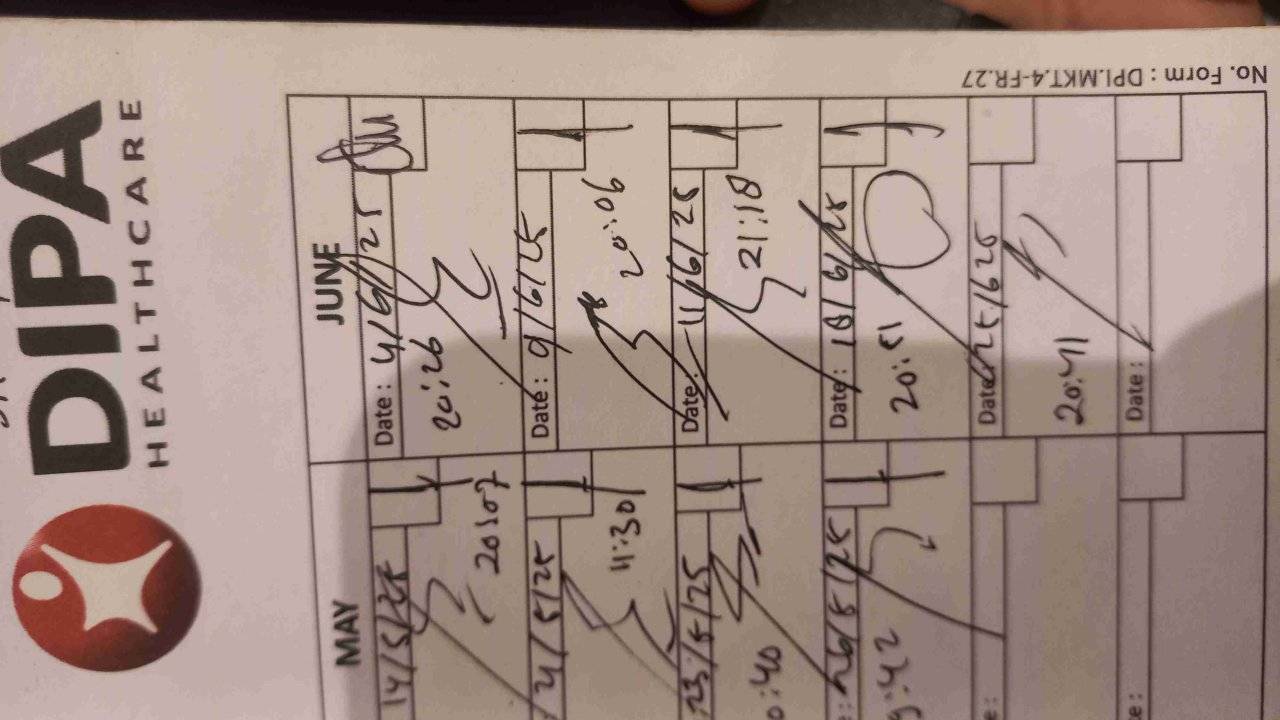 DIPA
HEALTHCARE
No. Form : DPI.MKT.4-FR.27
MAY
14/5/25
20:07
21/5/25
11:30
23/5/25
0:40
e: 26/5/25
9:42
e:
e:
JUNE
Date: 4/6/25
20:26
Date: 9/6/25
20:06
Date: 11/6/25
21:18
Date: 18/6/25
20:51
Date: 25/625
20:41
Date: